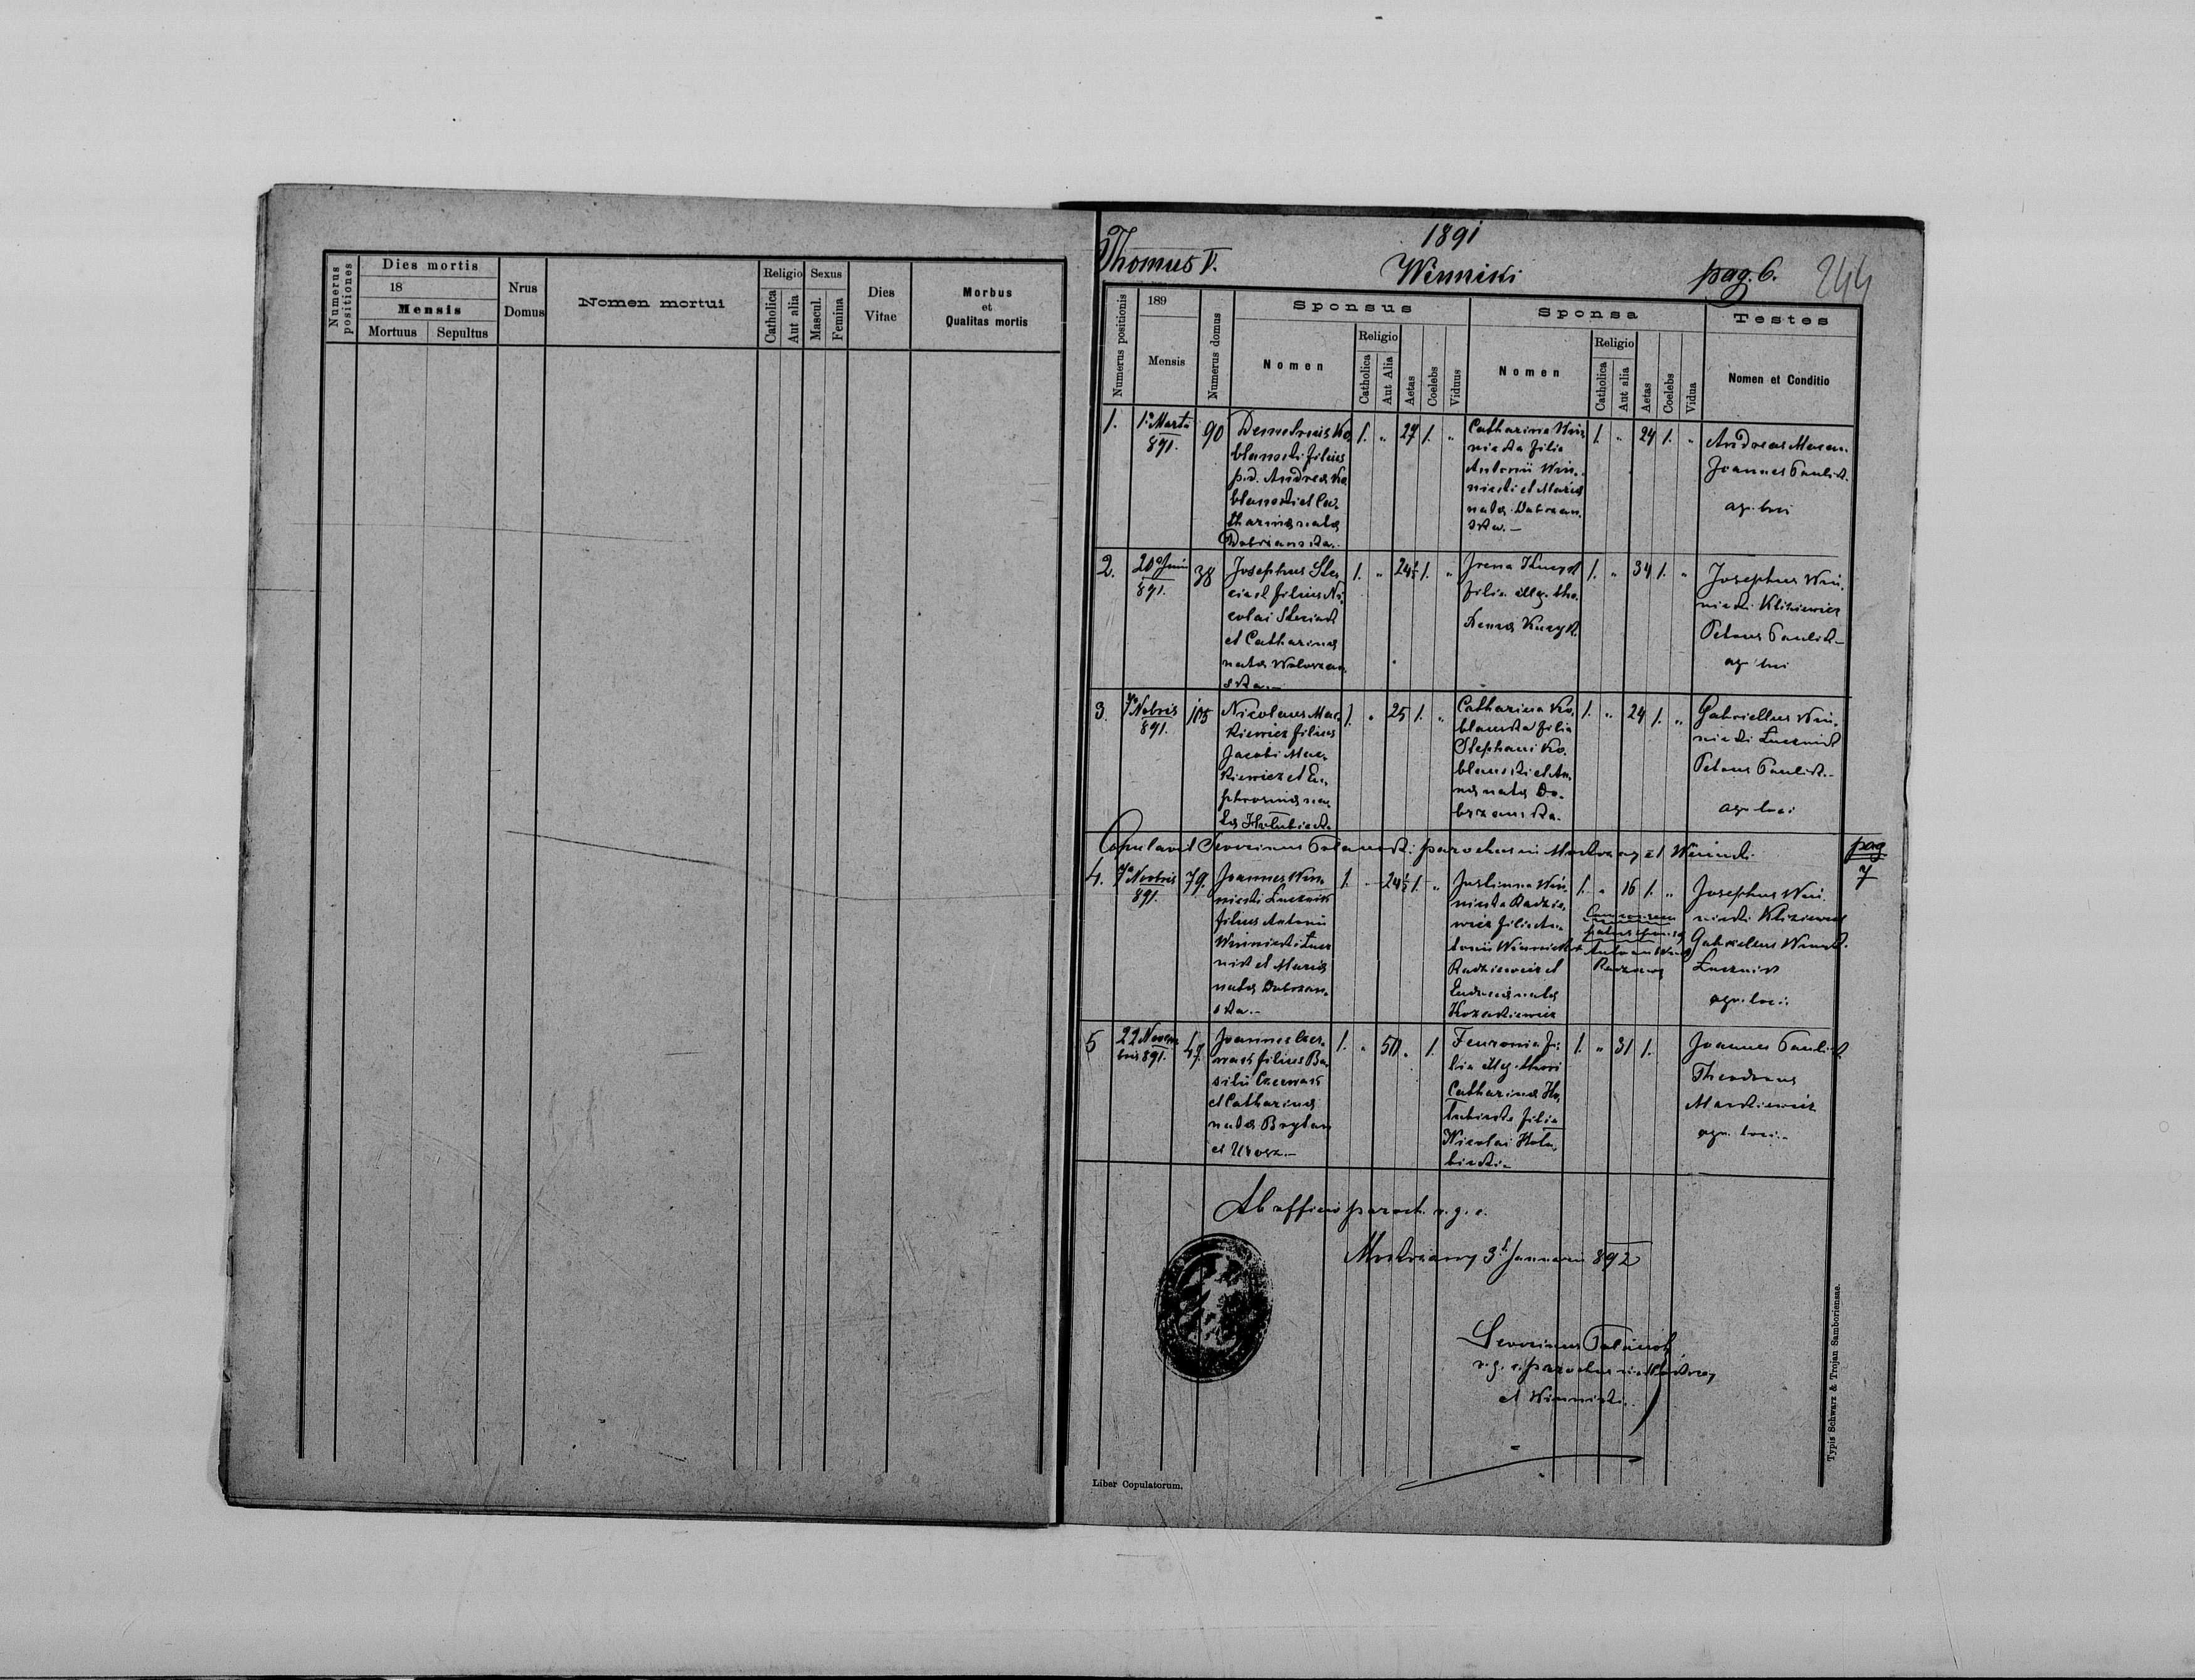 Numerus positiones
Dies mortis
18
Mensis
Mortuus
Sepultus
Nrus Domus
Nomen mortui
Religio
Catholica
Aut alia
Sexus
Mascul.
Femina
Dies Vitae
Morbus
et
Qualitas mortis
1891
Thomus V.
Winniki
pag. 6.
244
Numerus positionis
189
Mensis
Numerus domus
Sponsus
Nomen
Religio
Catholica
Aut Alia
Aetas
Coelebs
Viduus
Sponsa
Nomen
Religio
Catholica
Aut alia
Aetas
Coelebs
Vidua
Testes
Nomen et Conditio
1.
1º Marti
891.
90
Demetrius Ko
blanski filius
p.d. Andrea Ko
blanski et Ca
tharina nata
Dobrianska.
1. " 27 1. "
Catharina Win
nicka filia
Antonii Win
nicki et Maria
nata Dobrzan
ska.-
1. " 24 1. "
Andreas
Joannes Paulik.
agr. loci
2.
20º Junii
891.
38
Josephus
filius Ni
colai
et Catharina
nata Woloszan
ska.-
1. " 24½ 1. "
Irena Kuzyk
filia illeg. tho.
Kuzyk.
1. " 34 1. "
Josephus Win
nicki Klisiewicz
Petrus Paulik-
agr. loci
3.
7º Nobris
891.
105
Nicolaus Mac
kiewicz filius
Jacobi Mac
kiewicz et Eu
phrosina na
ta Holubicka
1. " 25 1. "
Catharina Ko
blanska filia
Stephani Ko
blanski et An
na nata Do
brzanska.
1. " 24 1. "
Gabriellus Win
nicki Lucznik
Petrus Paulik.
agr. loci
Copulavit Severinus parochus in et Winniki.
pag
7
4.
7º Novbris
891.
79.
Joannes Win
nicki Lucznik
filius Antonii
Winnicki Lucz
nik et Maria
nata Dobrzan
ska.-
1. - 24½ 1. "
Justinna Win
nicka Radzie
wicz filia An
tonii Winnicki
Radziewicz et
nata
Kozakiewicz
1. " 16 1. "
Josephus Win
nicki Klisiewicz
Gabriellus Winnick.
Lucznik
agr. loci.
5
22 Novem
bris 891.
47.
Joannes Czer
wak filius Ba
silii Czerwak
et Catharina
nata
et
1. " 50 " 1.
Feuronia fi
lia illeg. thori
Catharina Ho
lubicka filia
Nicolai Holu
bicki-
1. " 31 1.
Joannes Paulik
Theodorus
Mackiewicz
agr. loci.-
Ab officio paroch. r. g. c.
3t Januarii 892
Severinus
r. g. c. parochus in
et Winniki.
Liber Copulatorum.
Typis Schwarz & Trojan Samboriensae.